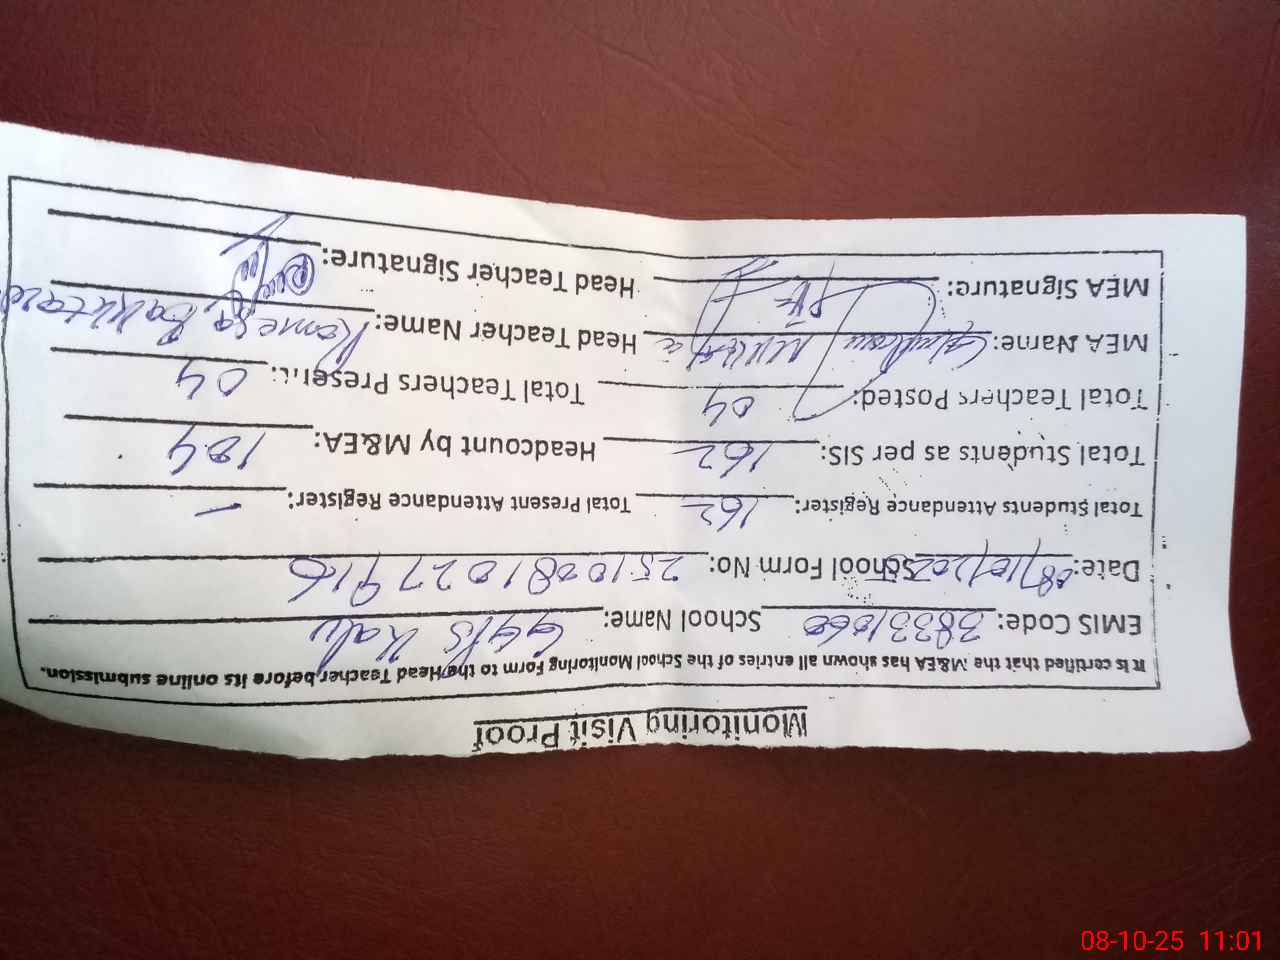 Monitoring Visit Proof
It is certified that the M&EA has shown all entries of the School Monitoring Form to the Head Teacher before its online submission.
EMIS Code: 38331060 School Name: GGPS Kalu
Date: 08/10/2025 School Form No: 2510081027916
Total Students Attendance Register: 162 Total Present Attendance Register: –
Total Students as per SIS: 162 Headcount by M&EA: 104
Total Teachers Posted: 04 Total Teachers Present: 04
MEA Name: Head Teacher Name:
MEA Signature: Head Teacher Signature:
08-10-25 11:01